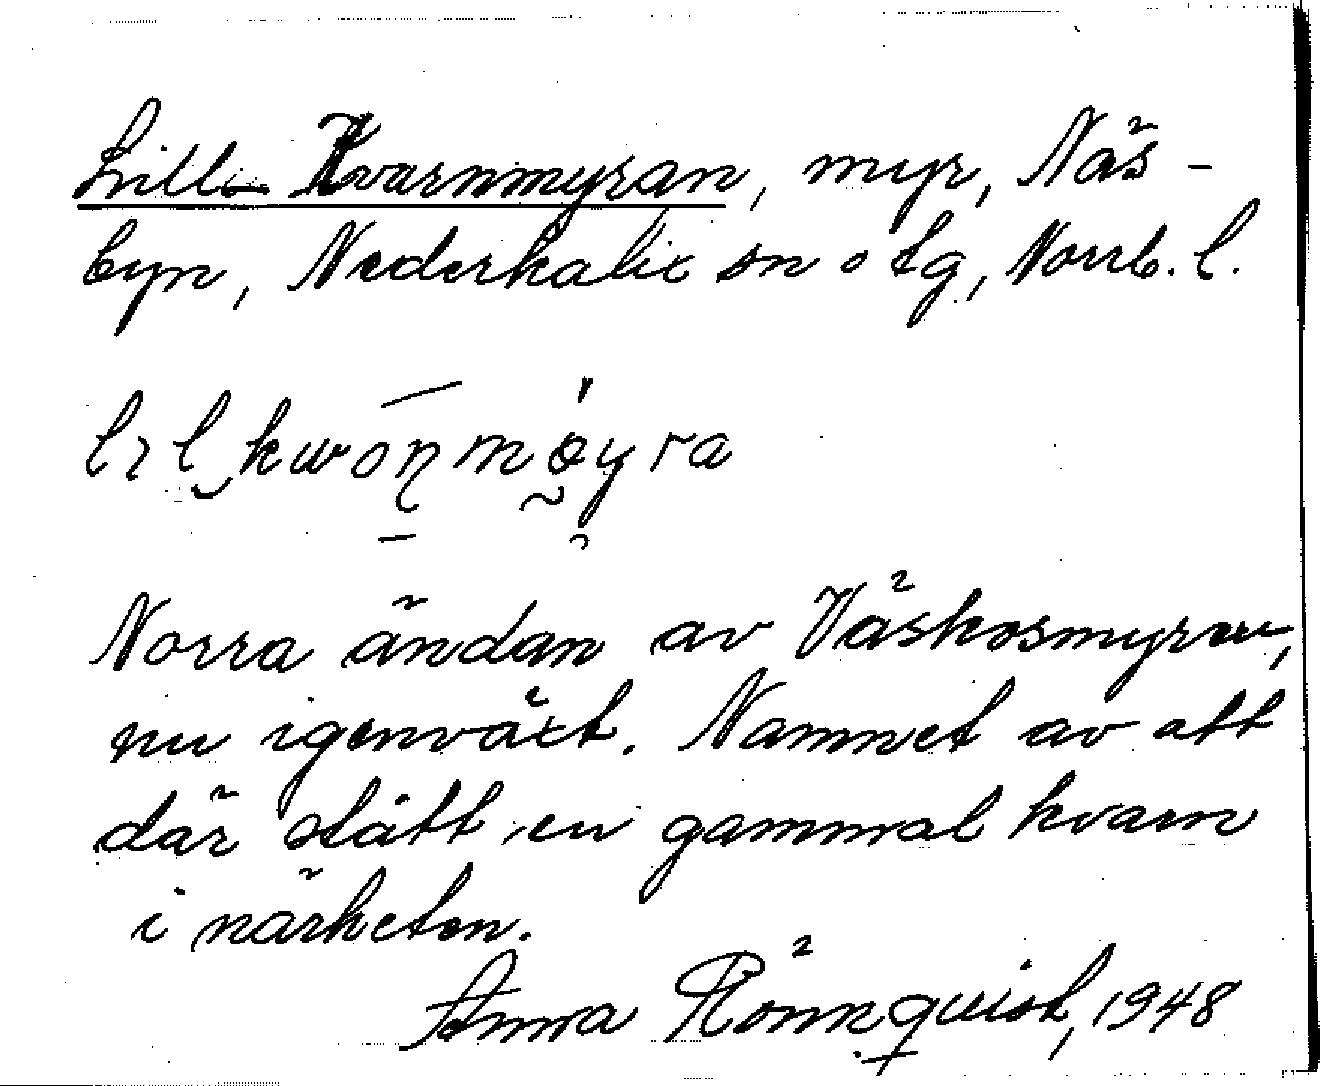 Lill- Kvarnmyran, myr, Näs-
byn, Nederkalix sn o tg, Norrb. l.
Norra ändan av Väskosmyran,
nu igenväxt. Namnet av att
där stått en gammal kvarn
i närheten.
Anna Rönnquist, 1948